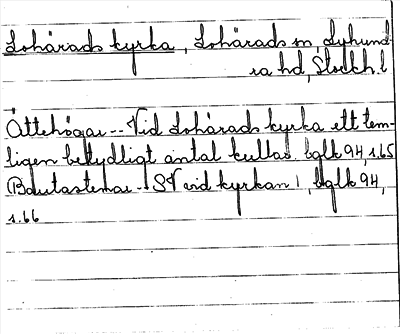 Lohärads kyrka, Lohärads sn, Lyhund
ra hd, Stockh. l
Ättehögar -- Vid Lohärads kyrka ett tem-
ligen betydligt antal kullar. bglk 94, s. 65
Bautastenar -- SV vid kyrkan 1, bglk 94,
s. 66